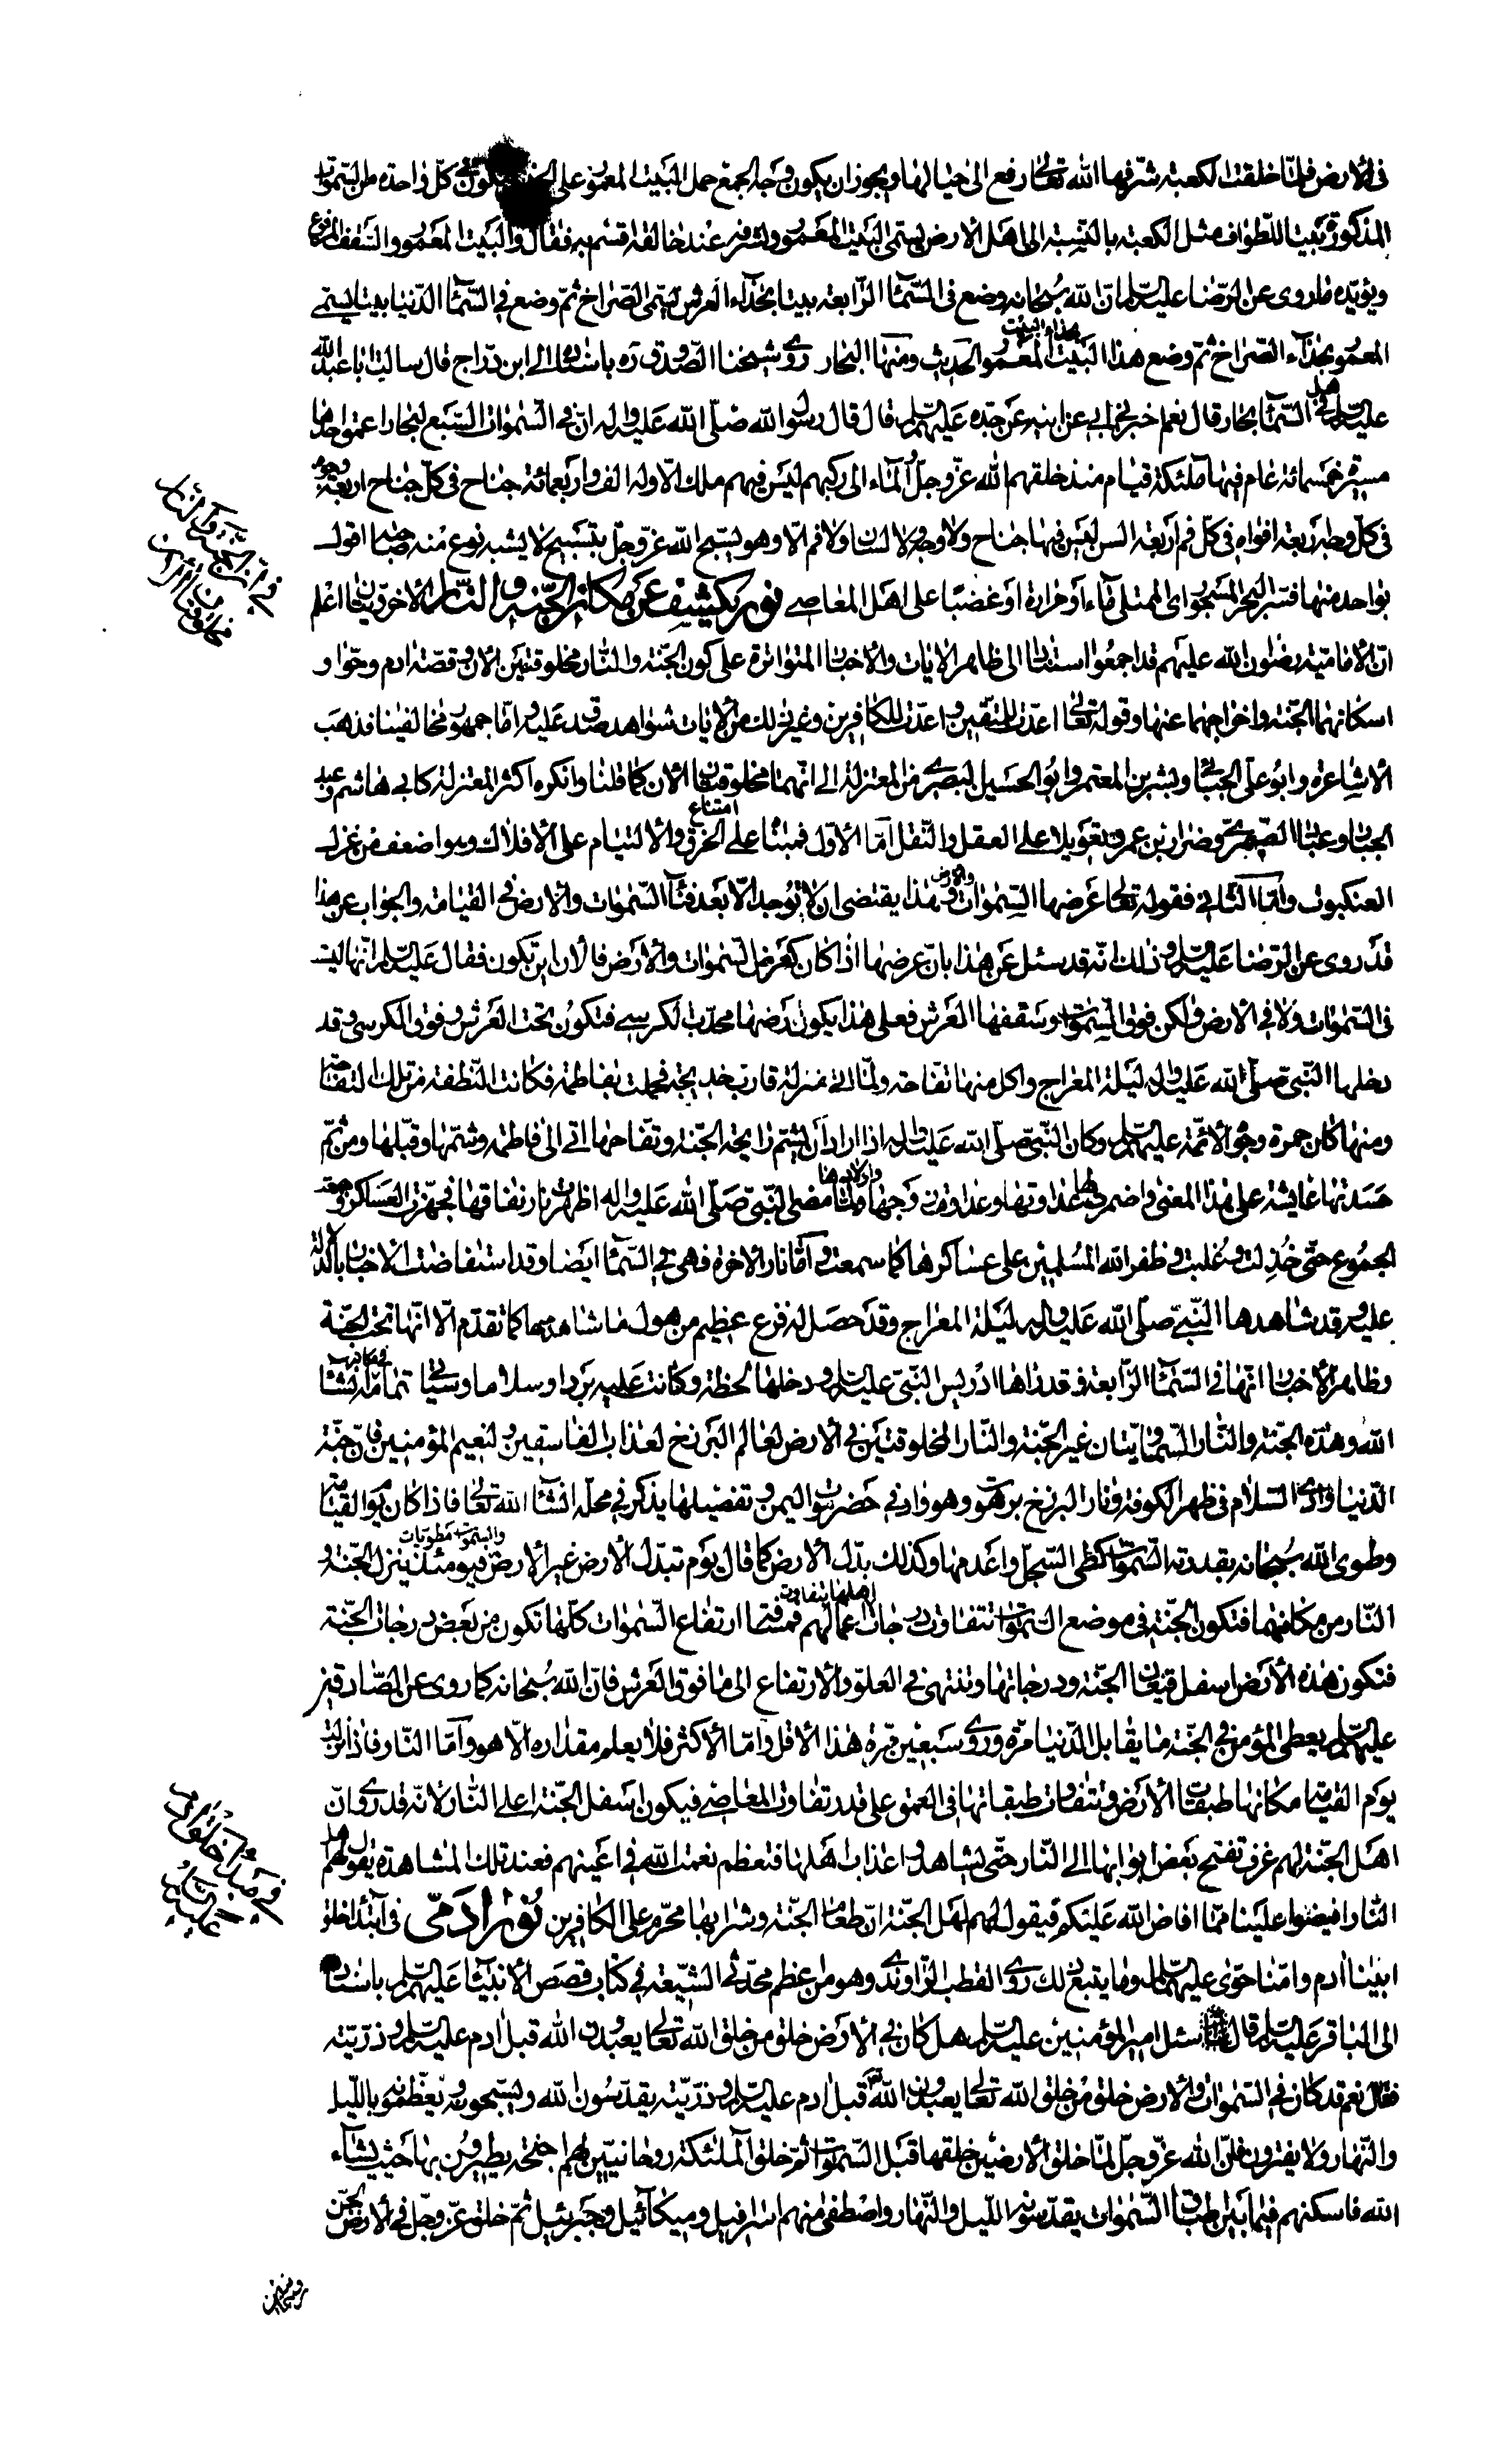 في الأرض فلمّا خلقت الكعبة شرّفها الله تعالى رفع الى حيالها ويجوز ان يكون وجه الجمع حمل البيت المعمور على كل واحدة من السّموات
المذكورة بيتا للطواف مثل الكعبة بالنسبة الى اهل الأرض يسمّى البيت المعمور ولشرفه عند خالقه اقسم به فقال والبيت المعمور والسّقف المرفوع
ويؤيّده ما روى عن الرّضا عليه السلم انّ الله سبحانه وضع في السّمآء الرّابعة بيتا بحذاء العرش يسمّى الصّراخ ثمّ وضع في السّمآء الدّنيا بيتا يسمّى
المعمور بحذآء الصّراخ ثمّ وضع هذا البيت بحذاء البيت المعمور الحديث ومنها البحار روى شيخنا الصّدوق ره باسناده الى ابن درّاج قال سالت ابا عبد الله
عليه السلم هل في السّمآء بحار قال نعم اخبرني ابى عن ابيه عن جدّه عليهم السلم قال قال رسول الله صلّى الله عليه واله انّ في السّموات السّبع لبحارا عمق احدها
مسيرة خمسمائة عام فيها ملئكة قيام منذ خلقهم الله عزّ وجلّ والمآء الى ركبهم ليس فيهم ملك الّا وله الف واربعمائة جناح في كلّ جناح اربعة وجوه
في كلّ وجه اربعة افواه في كلّ فم اربعة السن ليس فيها جناح ولا وجه ولا لسان ولا فم الّا وهو يسبّح الله عزّ وجلّ بتسبيح لا يشبه نوع منه صاحبه اقول
بواحد منها فسّر البحر المسجور اى الممتلى مآء او حرارة او غضبا على اهل المعاصى نور يكشف عن مكان الجنّة والنّار الأخرويّتان اعلم
انّ الأماميّة رضوان الله عليهم قد اجمعوا استنادا الى ظاهر الايات والأخبار المتواترة على كون الجنّة والنّار مخلوقتين الان وقصّة ادم وحوّا و
اسكانهما الجنّة واخراجهما عنها وقوله تعالى اعدّت للمتّقين واعدّت للكافرين وغير ذلك من الايات شواهد صدق عليه وامّا جمهور مخالفينا فذهب
الأشاعرة وابو على الجبائى وبشر بن المعتمر وابو الحسين البصرى من المعتزلة الى انّهما مخلوقتان الأن كما قلنا وانكره اكثر المعتزلة كابى هاشم وعبد
الجبار وعبّاد الصّيمرى وضرار بن عمرو تعويلا على العقل والنّقل امّا الأوّل فمبناه على امتناع الخرق والالتيام على الأفلاك وهو اضعف من غزل
العنكبوت وامّا الثّانى فقوله تعالى عرضها السّموات والارض وهذا يقتضى ان لا توجد الّا بعد فنآء السّموات والأرض في القيامة والجواب عن هذا
قد روى عن الرّضا عليه السلم وذلك انّه قد سئل عن هذا بانّ عرضها اذا كان كعرض السّموات والأرض فالأن اين تكون فقال عليه السلم انّها ليست
في السّموات ولا في الأرض ولكن فوق السّموات وسقفها العرش فعلى هذا يكون ارضها محدّب الكرسى فتكون تحت العرش وفوق الكرسى وقد
دخلها النّبى صلّى الله عليه واله ليلة المعراج واكل منها تفاحة ولمّا اتى منزله قارب خديجة فحملت بفاطمة فكانت النّطفة من تلك التفاحة
ومنها كان حمرة وجوه الائمّة عليهم السلم وكان النّبى صلّى الله عليه واله اذا اراد ان يشتمّ رايحة الجنّة وتفاحها اتى الى فاطمة وشمّها وقبّلها ومن ثمّ
حسدتها عايشة على هذا المعنى واضمرت لها عداوتها وعداوة زوجها واولادها فلمّا مضى النّبى صلّى الله عليه واله اظهرت نار نفاقها فجهّزت العساكر وعقدت
الجموع حتّى خُذِلت وغلبت وظفر الله المسلمين على عساكرها كما سمعت وامّا نار الاخرة فهى في السّمآء ايضا وقد استفاضت الاخبار بالدّلالة
عليه وقد شاهدها النّبى صلّى الله عليه واله ليلة المعراج وقد حصل له فزع عظيم من هول ما شاهد فيها كما تقدّم الّا انّها تحت الجنّة
وظاهر الأخبار انّها في السّمآء الرّابعة وقد راها ادريس النّبى عليه السلم ودخلها لحظة وكانت عليه بردا وسلاما وسياتى تمامه في مكانه انشآء
الله وهذه الجنّة والنّار السّماويّتان غير الجنّة والنّار المخلوقتين في الأرض لعالم البرزخ لعذاب الفاسقين ولنعيم المؤمنين فانّ جنّة
الدّنيا وادى السّلام في ظهر الكوفة ونار البرزخ برهوت وهو واد في حضرموت اليمن وتفصيلها يذكر في محلّه انشآء الله تعالى فاذا كان يوم القيامة
وطوى الله سبحانه بقدرته السّموات كطىّ السّجلّ واعدمها وكذلك بدّل الأرض كما قال يوم تبدّل الأرض غير الأرض والسموات مطويات فيومئذ ينزل الجنّة و
النّار من مكانهما فتكون الجنّة في موضع السّموات تتفاوت درجات اهلها بتفاوت اعمالهم فمسافة ارتفاع السّموات كلّها تكون من بعض درجات الجنّة
فتكون هذه الأرض اسفل قيعان الجنّة ودرجاتها وتنتهى في العلوّ والأرتفاع الى ما فوق العرش فانّ الله سبحانه كما روى عن الصّادقين
عليهم السلم يعطى المؤمن في الجنّة ما يقابل الدّنيا مرّة وروى سبعين مرّة هذا الأقل وامّا الأكثر فلا يعلم مقداره الّا هو وامّا النّار فاذا نزلت
يوم القيامة مكانها طبقات الأرض وتتفاوت طبقاتها في العمق على قدر تفاوت المعاصى فيكون اسفل الجنّة اعلى النّار لأنّه قد روى انّ
اهل الجنّة لهم غرف تفتح بعض ابوابها الى النّار حتّى يشاهدوا عذاب اهلها فتعظم نعمة الله في اعينهم فعند تلك المشاهدة يقول لهم اهل
النّار افيضوا علينا ممّا افاض الله عليكم فيقول لهم اهل الجنّة انّ طعام الجنّة وشرابها محرّم على الكافرين نور ادمى في ابتدا خلق
ابينا ادم وامّنا حوّى عليهما السلم وما يتبع ذلك روى القطب الرّاوندى وهو من اعظم محدّثى الشّيعة في كتاب قصص الأنبيآء عليهم السلم باسناده
الى الباقر عليه السلم قال سئل امير المؤمنين عليه السلم هل كان في الأرض خلق من خلق الله تعالى يعبدون الله قبل ادم عليه السلم وذرّيّته
فقال نعم قد كان في السّموات والأرض خلق من خلق الله تعالى يعبدون الله قبل ادم عليه السلم وذرّيّته يقدّسون الله ويسبّحونه ويعظّمونه باللّيل
والنّهار ولا يفترون فانّ الله عزّ وجلّ لمّا خلق الأرضين خلقها قبل السّموات ثمّ خلق الملئكة روحانيّين لهم اجنحة يطيرون بها حيث يشآء
الله فاسكنهم فيما بين اطباق السّموات يقدّسونه اللّيل والنّهار واصطفى منهم اسرافيل وميكائيل وجبرئيل ثمّ خلق عزّ وجلّ في الأرض الجنّ
روحانيين